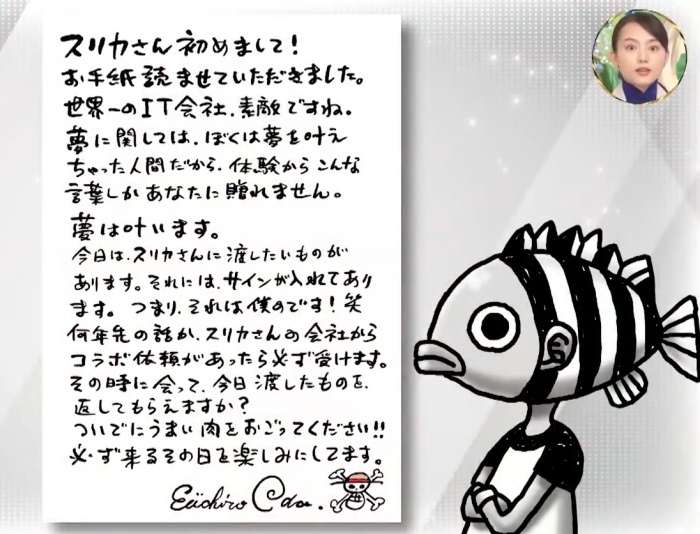 スリカさん初めまして!
お手紙読ませていただきました。
世界一のIT会社、素敵ですね。
夢に関しては、ぼくは夢を叶え
ちゃった人間だから、体験からこんな
言葉しかあなたに贈れません。
夢は叶います。
今日は、スリカさんに渡したいものが
あります。それには、サインが入れてあり
ます。つまり、それは僕のです!笑
何年先の話か、スリカさんの会社から
コラボ依頼があったら必ず受けます。
その時に会って、今日渡したものを、
返してもらえますか?
ついでにうまい肉をおごってください!!
必ず来るその日を楽しみにしてます。
Eiichiro Oda.